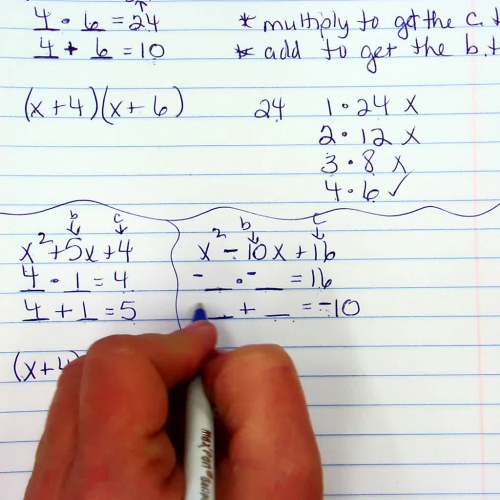 4 · 6 = 24 * multiply to get the c.
4 + 6 = 10 * add to get the b.
(x+4)(x+6) 24 1 · 24 x
2 · 12 x
3 · 8 x
4 · 6 ✓
b c
x² + 5x + 4
4 · 1 = 4
4 + 1 = 5
(x+4)
b c
x² - 10x + 16
-__ · -__ = 16
__ + __ = -10